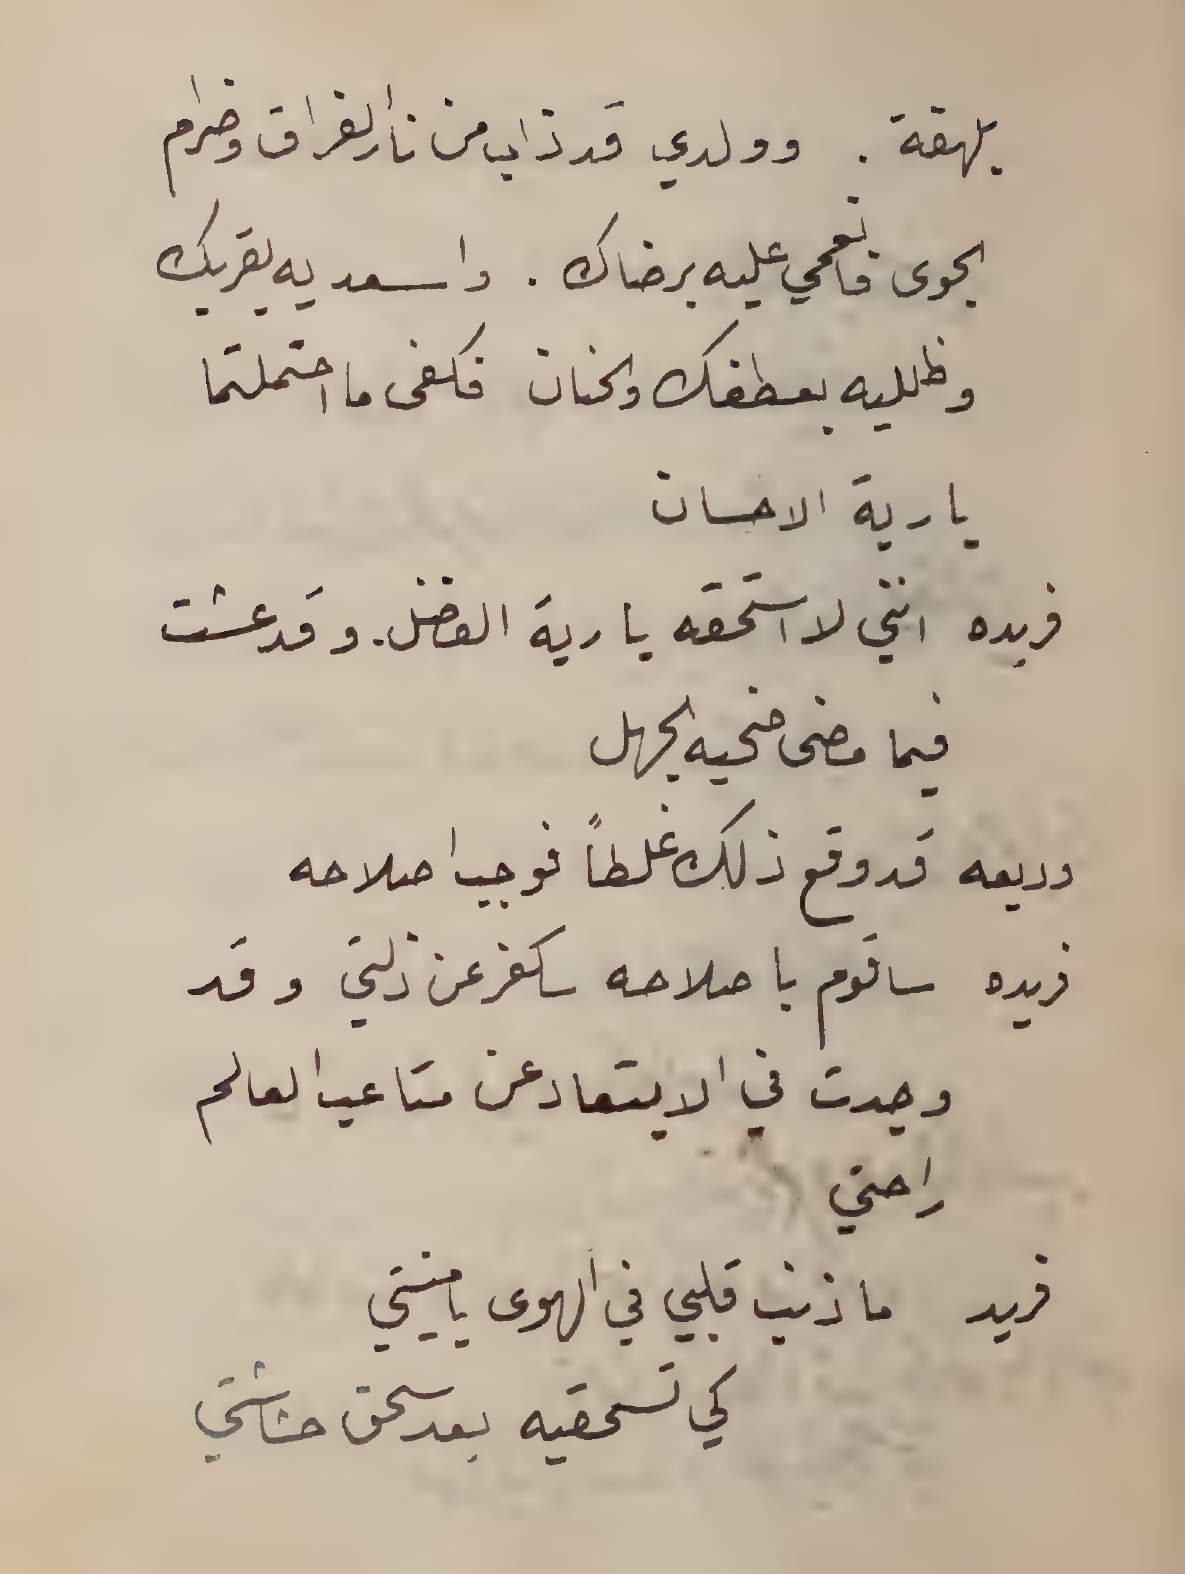 بلهفة . وولدي قد ذاب من نار الفراق وضرام
الجوى فانعمي عليه برضاك . واسعديه بقربك
وظلليه بعطفك والحنان فكفى ما احتملتما
يا ربة الاحسان
فريده انني لا استحقه يا ربة الفضل. وقد عشت
فيما مضى ضحية الجهل
وديعه قد وقع ذلك غلطاً فوجب اصلاحه
فريده ساقوم باصلاحه ساكفر عن ذلتي وقد
وجدت في الابتعاد عن متاعب العالم
راحتي
فريد ما ذنب قلبي في الهوى يا منيتي
كي تسحقيه بعد سحق حشاشتي